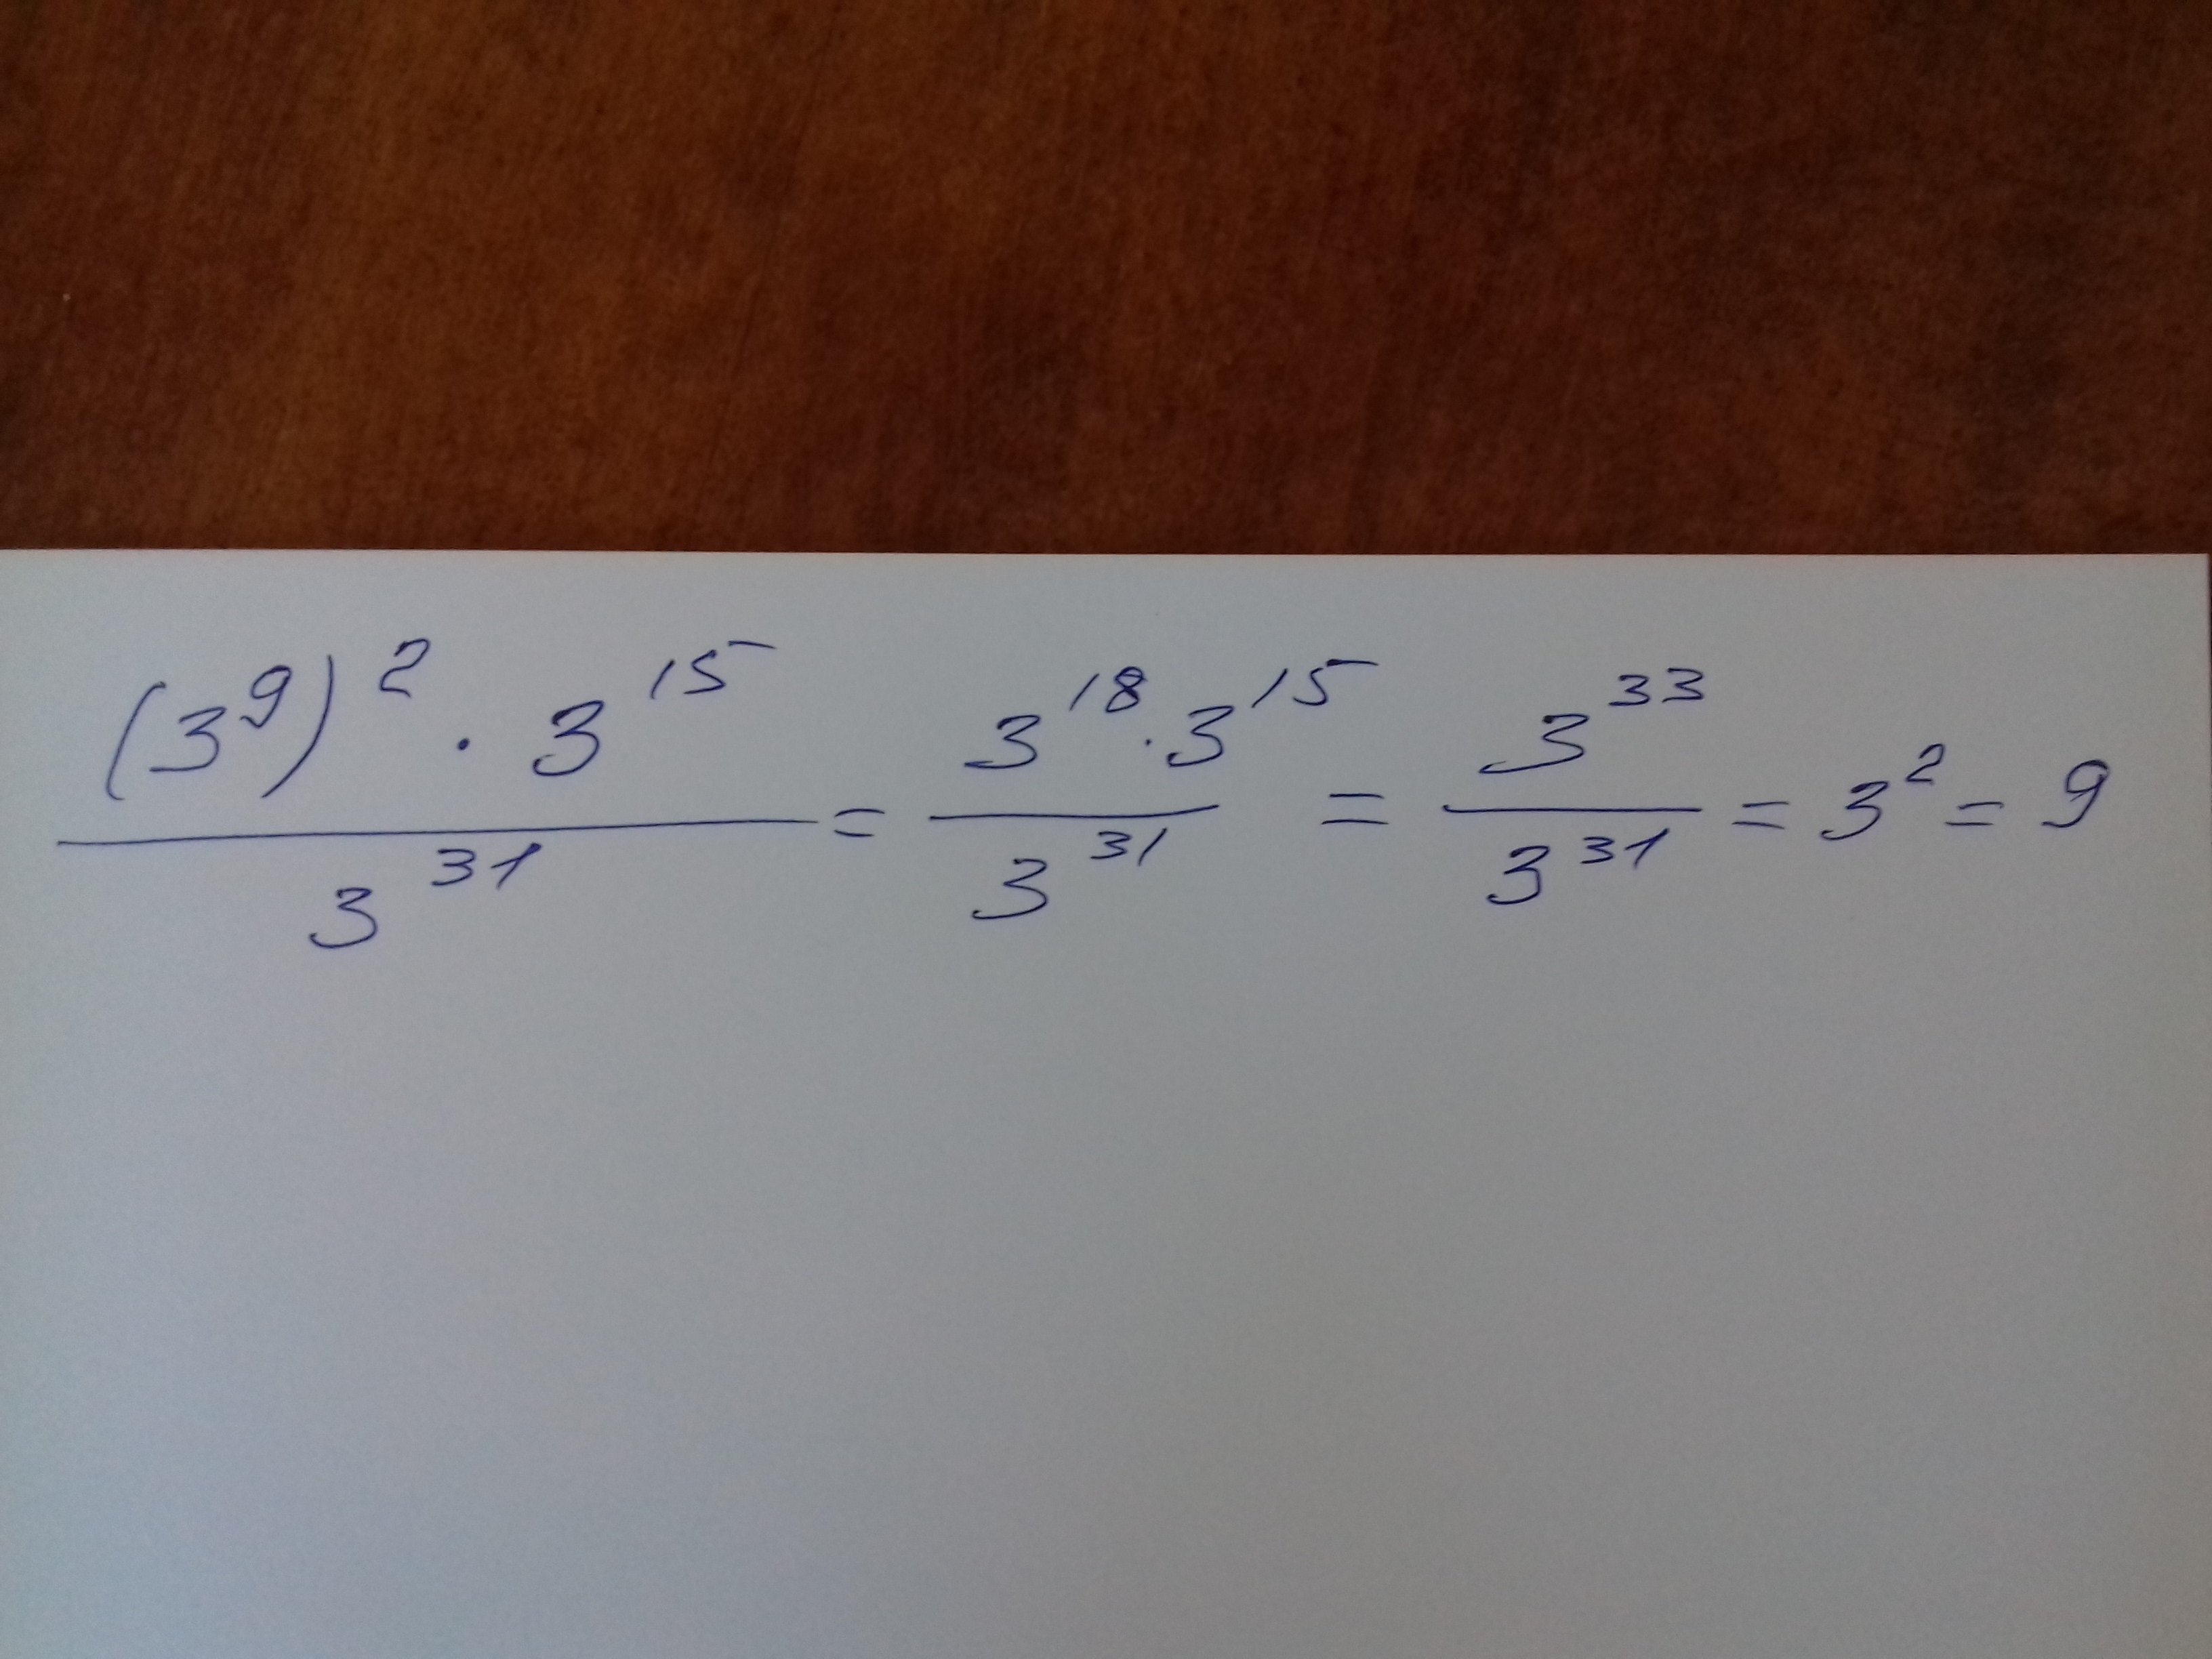 (3^9)^2 · 3^15 / 3^31 = 3^18 · 3^15 / 3^31 = 3^33 / 3^31 = 3^2 = 9